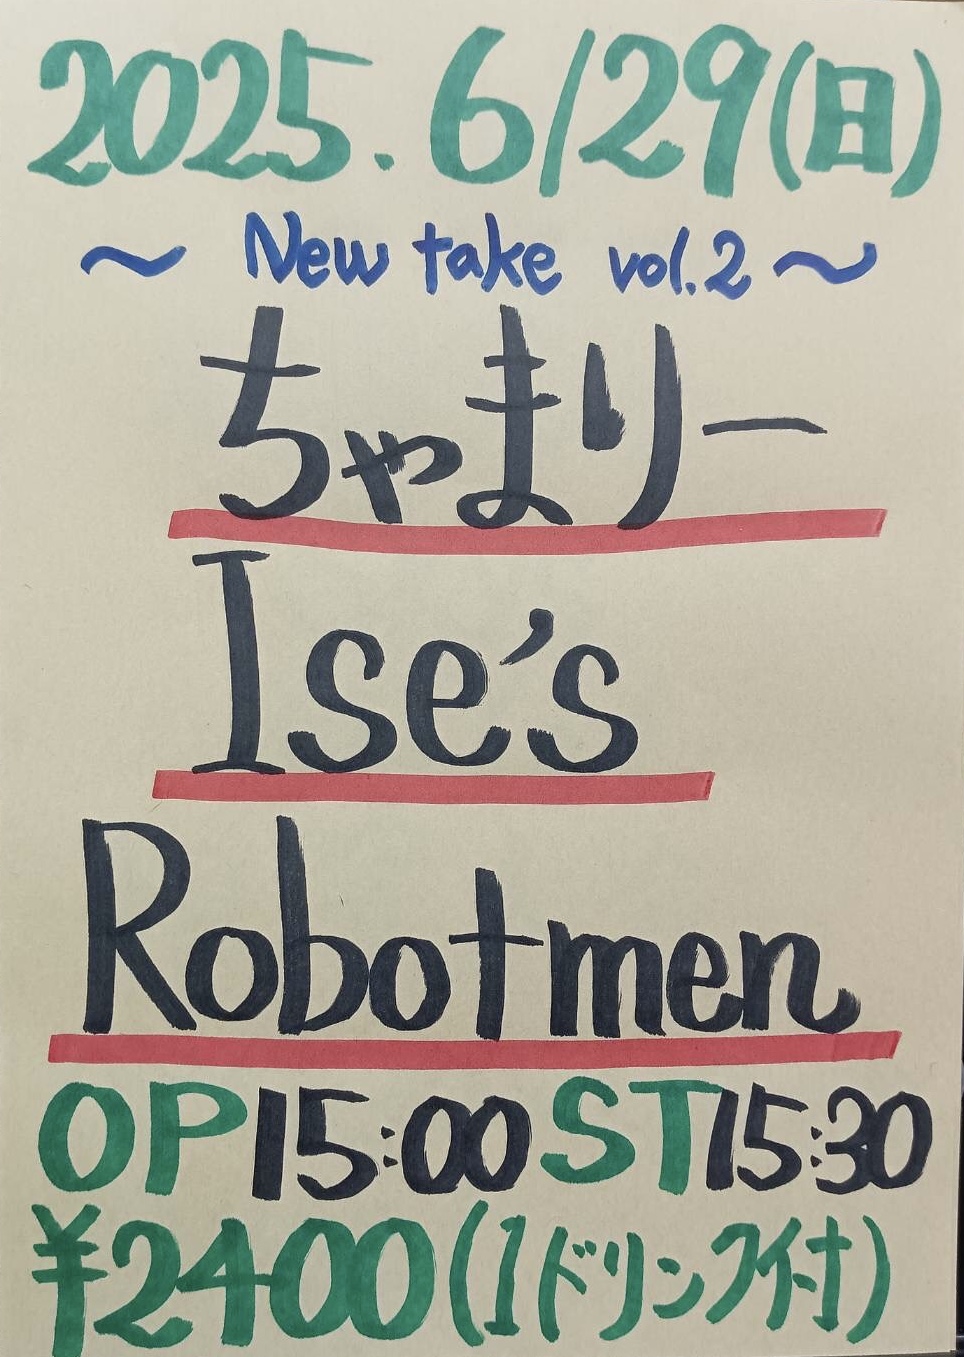 2025.6/29(日)
～ New take vol.2 ～
ちゃまりー
Ise's
Robotmen
OP 15:00 ST 15:30
¥2400(1ドリンク付)